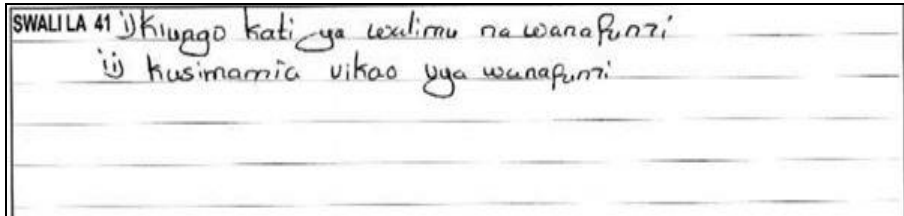 SWALI LA 41 i) Kiungo kati ya walimu na wanafunzi
ii) kusimamia vikao vya wanafunzi